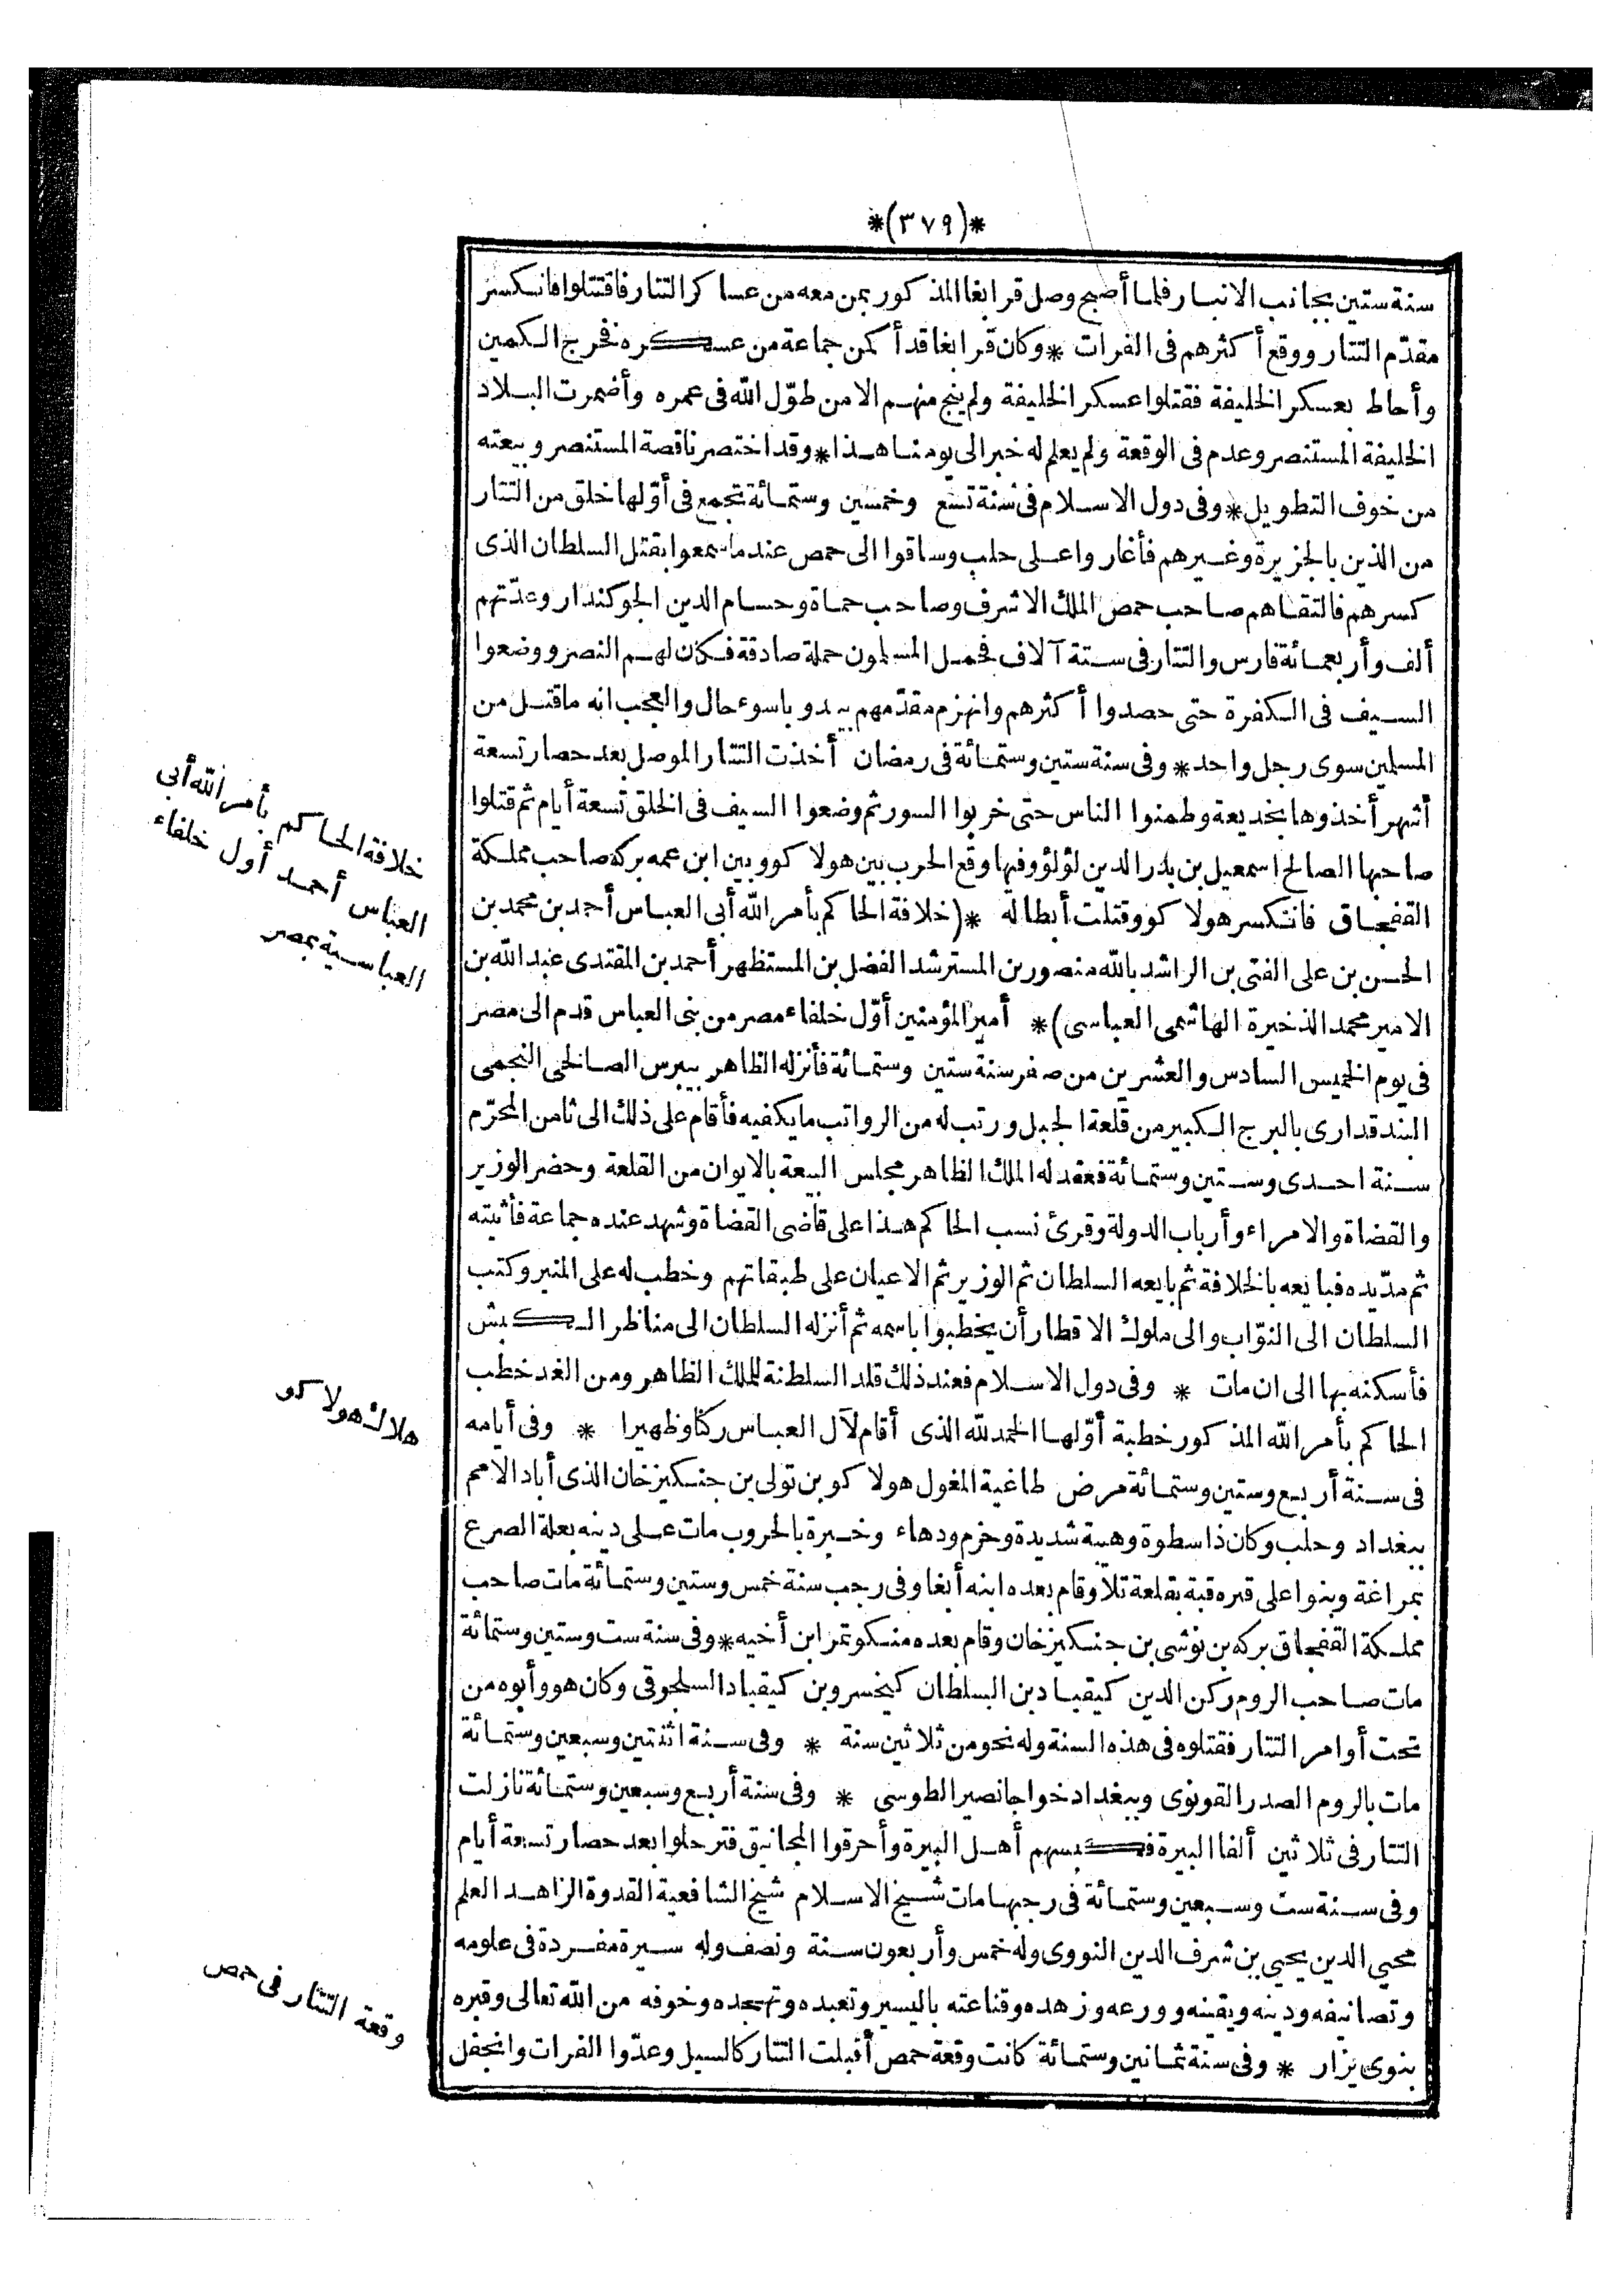 *(٣٧٩)*
سنة ستين بجانب الانبار فلما أصبح وصل قرابغا المذكور بمن معه من عساكر التتار فاقتتلوا فانكسر
مقدّم التتار ووقع أكثرهم فى الفرات * وكان قرابغا قد أكمن جماعة من عسكره فخرج الكمين
وأحاط بعسكر الخليفة فقتلوا عسكر الخليفة ولم ينج منهم الا من طوّل الله فى عمره وأضمرت البلاد
الخليفة المستنصر وعدم فى الوقعة ولم يعلم له خبر الى يومنا هذا * وقد اختصرنا قصة المستنصر وبيعته
من خوف التطويل * وفى دول الاسلام فى سنة تسع وخمسين وستمائة تجمع فى أوّلها خلق من التتار
من الذين بالجزيرة وغيرهم فأغاروا على حلب وساقوا الى حمص عند ما سمعوا بقتل السلطان الذى
كسرهم فالتقاهم صاحب حمص الملك الاشرف وصاحب حماة وحسام الدين الجوكندار وعدّتهم
ألف وأربعمائة فارس والتتار فى ستة آلاف فحمل المسلمون حملة صادقة فكان لهم النصر ووضعوا
السيف فى الكفرة حتى حصدوا أكثرهم وانهزم مقدّمهم بيدو باسوء حال والعجب انه ما قتل من
المسلمين سوى رجل واحد * وفى سنة ستين وستمائة فى رمضان أخذت التتار الموصل بعد حصار تسعة
أشهر أخذوها بخديعة وطمنوا الناس حتى خربوا السور ثم وضعوا السيف فى الخلق تسعة أيام ثم قتلوا
صاحبها الصالح اسمعيل بن بدر الدين لؤلؤ وفيها وقع الحرب بين هولاكو وبين ابن عمه بركه صاحب مملكة
القفجاق فانكسر هولاكو وقتلت أبطاله * (خلافة الحاكم بأمر الله أبى العباس أحمد بن محمد بن
الحسن بن على الفتى بن الراشد بالله منصور بن المسترشد الفضل بن المستظهر أحمد بن المقتدى عبد الله بن
الامير محمد الذخيرة الهاشمى العباسى) * أمير المؤمنين أوّل خلفاء مصر من بنى العباس قدم الى مصر
فى يوم الخميس السادس والعشرين من صفر سنة ستين وستمائة فأنزله الظاهر بيبرس الصالحى النجمى
البندقدارى بالبرج الكبير من قلعة الجبل ورتب له من الرواتب ما يكفيه فأقام على ذلك الى ثامن المحرّم
سنة احدى وستين وستمائة فعقد له الملك الظاهر مجلس البيعة بالايوان من القلعة وحضر الوزير
والقضاة والامراء وأرباب الدولة وقرئ نسب الحاكم هذا على قاضى القضاة وشهد عنده جماعة فأثبته
ثم مدّيده فبايعه بالخلافة ثم بايعه السلطان ثم الوزير ثم الاعيان على طبقاتهم وخطب له على المنبر وكتب
السلطان الى النوّاب والى ملوك الاقطار أن يخطبوا باسمه ثم أنزله السلطان الى مناظر الكبش
فأسكنه بها الى ان مات * وفى دول الاسلام فعند ذلك قلد السلطنة للملك الظاهر ومن الغد خطب
الحاكم بأمر الله المذكور خطبة أوّلها الحمد لله الذى أقام لآل العباس ركنا وظهيرا * وفى أيامه
فى سنة أربع وستين وستمائة مرض طاغية المغول هولاكو بن تولى بن جنكيزخان الذى أباد الامم
ببغداد وحلب وكان ذا سطوة وهيبة شديدة وحزم ودهاء وخبرة بالحروب مات على دينه بعلة الصرع
بمراغة وبنوا على قبره قبة بقلعة تلا وقام بعده ابنه أبغا وفى رجب سنة خمس وستين وستمائة مات صاحب
مملكة القفجاق بركه بن توشى بن جنكيزخان وقام بعده منكوتمر ابن أخيه * وفى سنة ست وستين وستمائة
مات صاحب الروم ركن الدين كيقباد بن السلطان كيخسرو بن كيقباد السلجوقى وكان هو وأبوه من
تحت أوامر التتار فقتلوه فى هذه السنة وله نحو من ثلاثين سنة * وفى سنة اثنتين وسبعين وستمائة
مات بالروم الصدر القونوى وببغداد خواجا نصير الطوسى * وفى سنة أربع وسبعين وستمائة نازلت
التتار فى ثلاثين ألفا البيرة فكبسهم أهل البيرة وأحرقوا المجانيق فترحلوا بعد حصار تسعة أيام
وفى سنة ست وسبعين وستمائة فى رجبها مات شيخ الاسلام شيخ الشافعية القدوة الزاهد العلم
محيى الدين يحيى بن شرف الدين النووى وله خمس وأربعون سنة ونصف وله سيرة مفردة فى علومه
وتصانيفه ودينه ويقينه وورعه وزهده وقناعته باليسير وتعبده وتهجده وخوفه من الله تعالى وقبره
بنوى يزار * وفى سنة ثمانين وستمائة كانت وقعة حمص أقبلت التتار كالسيل وعدّوا الفرات وانجفل
خلافة الحاكم بأمر الله أبى
العباس أحمد أول خلفاء
العباسية بمصر
هلاك هولاكو
وقعة التتار فى حمص